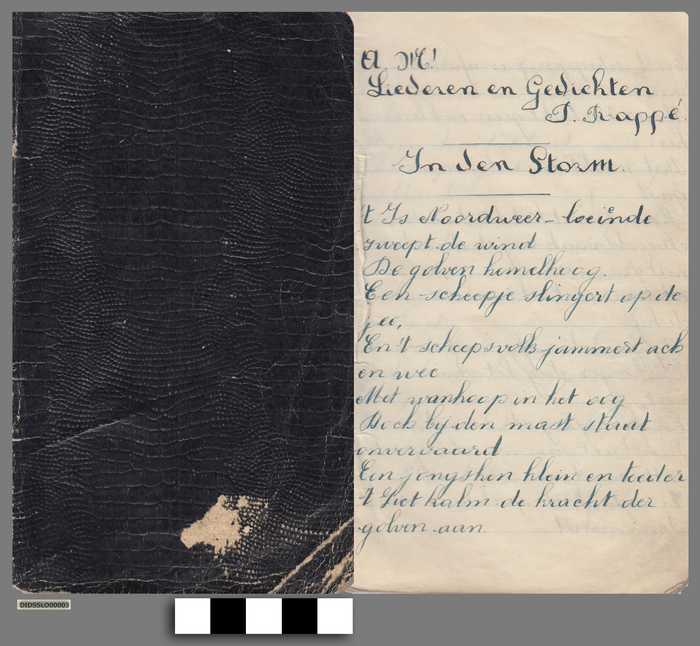 A. M!
Liederen en Gedichten
P. Rappé.
In den Storm.
't Is Noordweer - loeiënde
zweept de wind
De golven hemelhoog.
Een scheepje slingert op de
zee,
En 't scheepsvolk jammert ach
en wee
Met wanhoop in het oog
Doch bij den mast staat
onvervaard
Een jongsken klein en teeder
't Ziet kalm de kracht der
golven aan
DIDSSLO00003